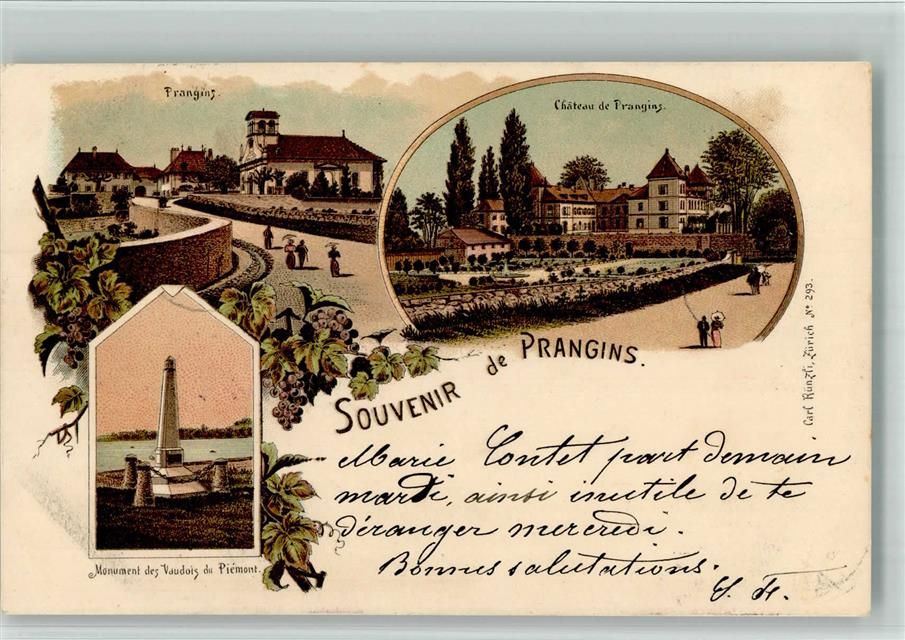 Prangins.
Château de Prangins.
Souvenir de Prangins.
Carl Künzli, Zürich Nº 293.
Monument des Vaudois du Piémont.
Marie Contet part demain
mardi, ainsi inutile de te
déranger mercredi.
Bonnes salutations.
S. F.